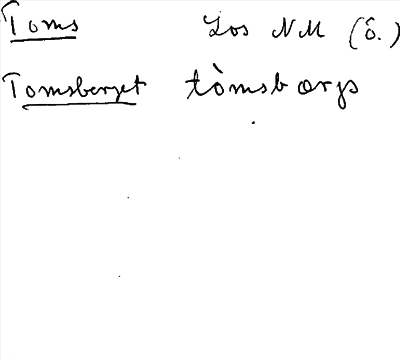 Toms Los NM (ö.)
Tomsberget tòmsbærjə